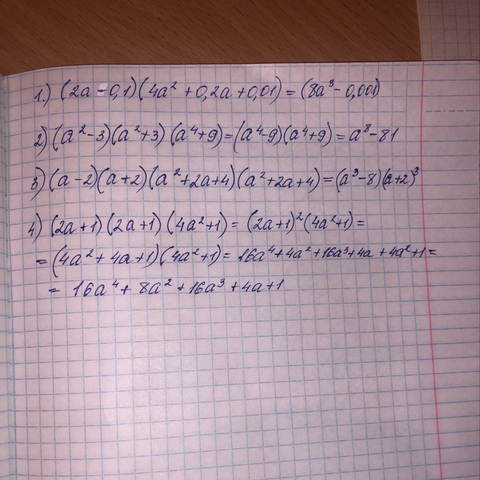 1.) (2a - 0,1)(4a² + 0,2a + 0,01) = (8a³ - 0,001)
2) (a² - 3)(a² + 3)(a⁴ + 9) = (a⁴ - 9)(a⁴ + 9) = a⁸ - 81
3) (a - 2)(a + 2)(a² + 2a + 4)(a² + 2a + 4) = (a³ - 8)(a + 2)³
4) (2a + 1)(2a + 1)(4a² + 1) = (2a + 1)²(4a² + 1) =
= (4a² + 4a + 1)(4a² + 1) = 16a⁴ + 4a² + 16a³ + 4a + 4a² + 1 =
= 16a⁴ + 8a² + 16a³ + 4a + 1